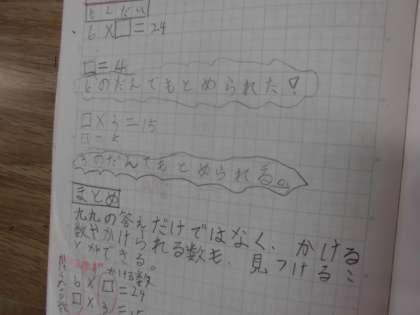 6 × □ = 24
□ = 4
6のだんでもとめられた!
□ × 3 = 15
□ = 5
3のだんでもとめられる。
まとめ
九九の答えだけではなく、かける
数やかけられる数も、見つけるこ
とができる。
かける数
6 × □ = 24
□ × 3 = 15